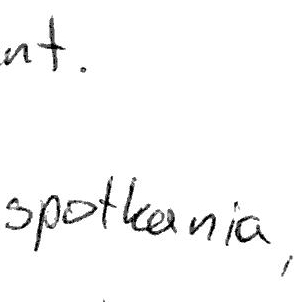 nt.
spotkania,